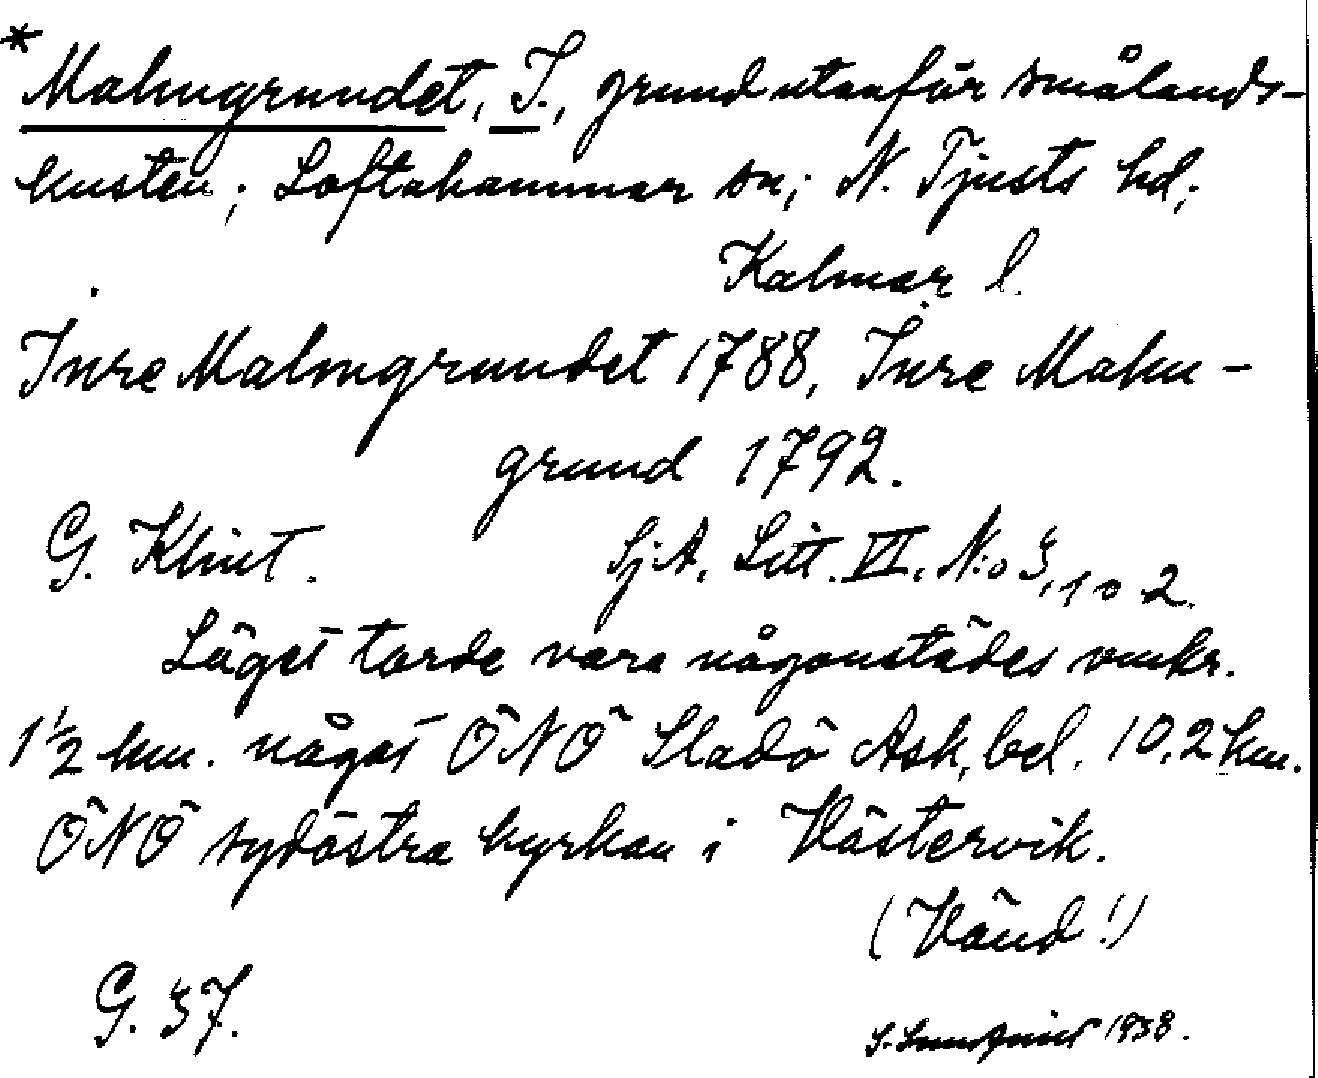 * Malmgrundet, I., grund utanför smålands-
kusten; Loftahammar sn; N. Tjusts hd;
Kalmar l.
Inre Malmgrundet 1788, Inre Malm-
grund 1792.
G. Klint. Sj.A. Litt. VI. N:o 3, 1 o 2.
Läget torde vara någonstädes omkr.
1½ km. något ÖNÖ Sladö Ask, bel. 10,2 km.
ÖNÖ sydöstra kyrkan i Västervik.
(Vänd!)
G. 37.
1938.